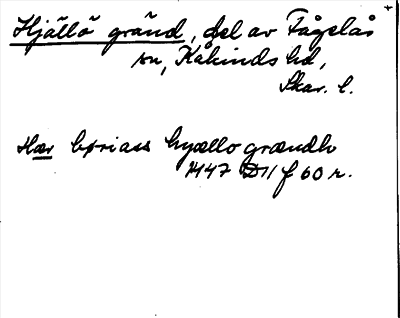 Hjällö gränd, del av Fågelås
sn, Kåkinds hd,
Skar. l.
Hær byriass hyællo grændh
1447 D11 f 60 r.